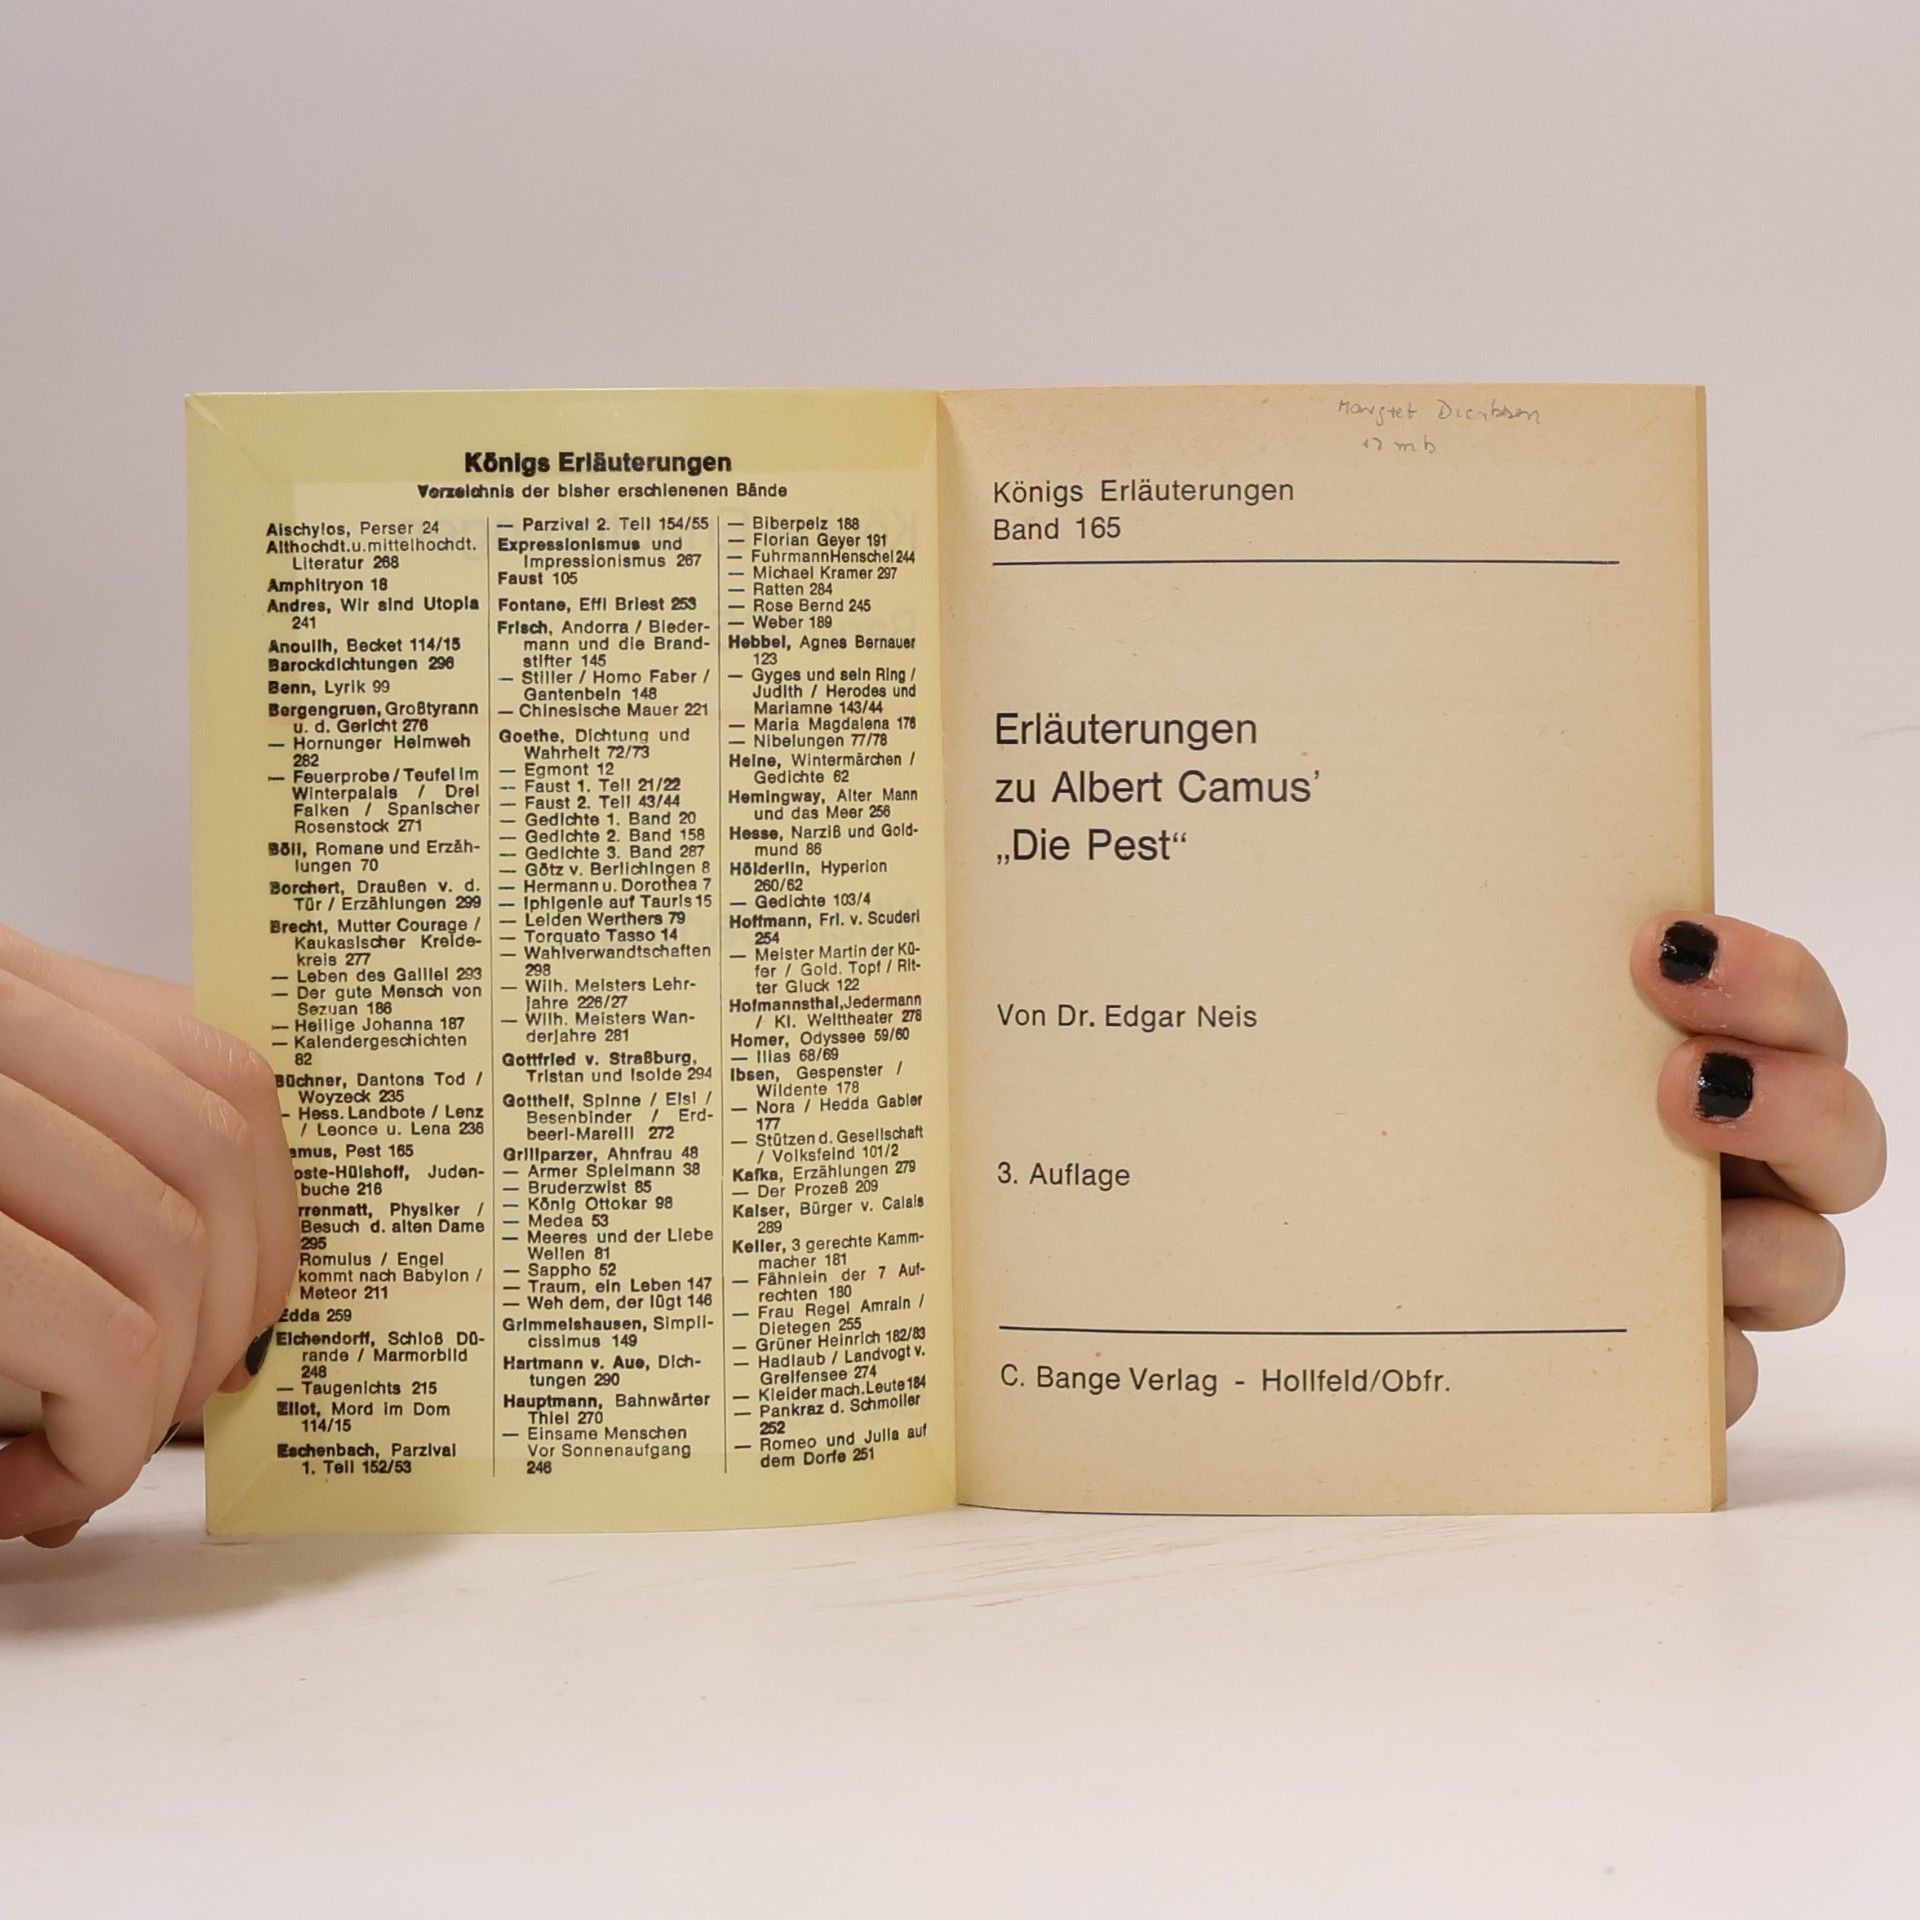 Königs Erläuterungen
Verzeichnis der bisher erschienenen Bände
Aischylos, Perser 24
Althochdt.u.mittelhochdt.
Literatur 268
Amphitryon 18
Andres, Wir sind Utopia
241
Anouilh, Becket 114/15
Barockdichtungen 296
Benn, Lyrik 99
Bergengruen, Großtyrann
u. d. Gericht 276
— Hornunger Heimweh
282
— Feuerprobe / Teufel im
Winterpalais / Drei
Falken / Spanischer
Rosenstock 271
Böll, Romane und Erzäh-
lungen 70
Borchert, Draußen v. d.
Tür / Erzählungen 299
Brecht, Mutter Courage /
Kaukasischer Kreide-
kreis 277
— Leben des Galilei 293
— Der gute Mensch von
Sezuan 186
— Heilige Johanna 187
— Kalendergeschichten
82
Büchner, Dantons Tod /
Woyzeck 235
— Hess. Landbote / Lenz
/ Leonce u. Lena 236
amus, Pest 165
oste-Hülshoff, Juden-
buche 216
rrenmatt, Physiker /
Besuch d. alten Dame
295
Romulus / Engel
kommt nach Babylon /
Meteor 211
Edda 259
Eichendorff, Schloß Dü-
rande / Marmorbild
248
— Taugenichts 215
Eliot, Mord im Dom
114/15
Eschenbach, Parzival
1. Teil 152/53
— Parzival 2. Teil 154/55
Expressionismus und
Impressionismus 267
Faust 105
Fontane, Effi Briest 253
Frisch, Andorra / Bieder-
mann und die Brand-
stifter 145
— Stiller / Homo Faber /
Gantenbein 148
— Chinesische Mauer 221
Goethe, Dichtung und
Wahrheit 72/73
— Egmont 12
— Faust 1. Teil 21/22
— Faust 2. Teil 43/44
— Gedichte 1. Band 20
— Gedichte 2. Band 158
— Gedichte 3. Band 287
— Götz v. Berlichingen 8
— Hermann u. Dorothea 7
— Iphigenie auf Tauris 15
— Leiden Werthers 79
— Torquato Tasso 14
— Wahlverwandtschaften
298
— Wilh. Meisters Lehr-
jahre 226/27
— Wilh. Meisters Wan-
derjahre 281
Gottfried v. Straßburg,
Tristan und Isolde 294
Gotthelf, Spinne / Elsi /
Besenbinder / Erd-
beeri-Mareili 272
Grillparzer, Ahnfrau 48
— Armer Spielmann 38
— Bruderzwist 85
— König Ottokar 98
— Medea 53
— Meeres und der Liebe
Wellen 81
— Sappho 52
— Traum, ein Leben 147
— Weh dem, der lügt 146
Grimmelshausen, Simpli-
cissimus 149
Hartmann v. Aue, Dich-
tungen 290
Hauptmann, Bahnwärter
Thiel 270
— Einsame Menschen
Vor Sonnenaufgang
246
— Biberpelz 188
— Florian Geyer 191
— Fuhrmann Henschel 244
— Michael Kramer 297
— Ratten 284
— Rose Bernd 245
— Weber 189
Hebbel, Agnes Bernauer
123
— Gyges und sein Ring /
Judith / Herodes und
Mariamne 143/44
— Maria Magdalena 176
— Nibelungen 77/78
Heine, Wintermärchen /
Gedichte 62
Hemingway, Alter Mann
und das Meer 256
Hesse, Narziß und Gold-
mund 86
Hölderlin, Hyperion
260/62
— Gedichte 103/4
Hoffmann, Frl. v. Scuderi
254
— Meister Martin der Kü-
fer / Gold. Topf / Rit-
ter Gluck 122
Hofmannsthal, Jedermann
/ Kl. Welttheater 278
Homer, Odyssee 59/60
— Ilias 68/69
Ibsen, Gespenster /
Wildente 178
— Nora / Hedda Gabler
177
— Stützen d. Gesellschaft
/ Volksfeind 101/2
Kafka, Erzählungen 279
— Der Prozeß 209
Kaiser, Bürger v. Calais
289
Keller, 3 gerechte Kamm-
macher 181
— Fähnlein der 7 Auf-
rechten 180
— Frau Regel Amrain /
Dietegen 255
— Grüner Heinrich 182/83
— Hadlaub / Landvogt v.
Greifensee 274
— Kleider mach. Leute 184
— Pankraz d. Schmoller
252
— Romeo und Julia auf
dem Dorfe 251
Margret
Königs Erläuterungen
Band 165
Erläuterungen
zu Albert Camus’
„Die Pest“
Von Dr. Edgar Neis
3. Auflage
C. Bange Verlag - Hollfeld/Obfr.